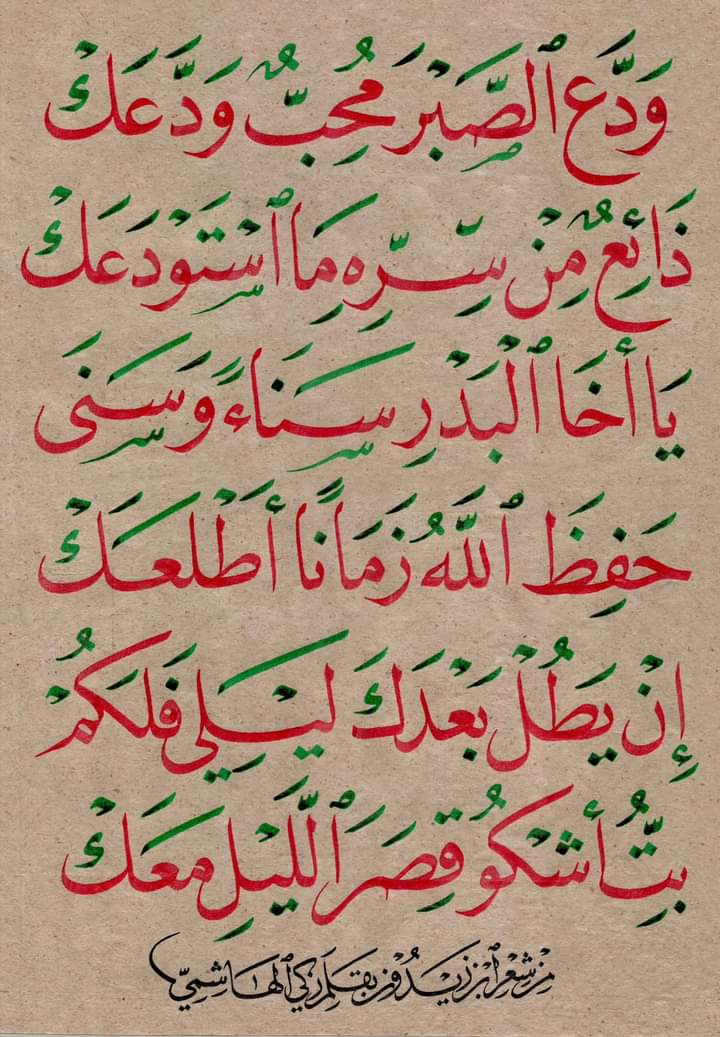 وَدَّعَ ٱلصَّبْرَ مُحِبٌّ وَدَّعَكْ
ذَائِعٌ مِنْ سِرِّهِ مَا ٱسْتَوْدَعَكْ
يَا أَخَا ٱلْبَدْرِ سَنَاءً وَسَنَى
حَفِظَ ٱللَّهُ زَمَانًا أَطْلَعَكْ
إِنْ يَطُلْ بَعْدَكَ لَيْلِي فَلَكَمْ
بِتُّ أَشْكُو قِصَرَ ٱللَّيْلِ مَعَكْ
مِنْ شِعْرِ ٱبْنِ زَيْدُوْنَ بِقَلَمِ زَكِي ٱلْهَاشِمِيِّ